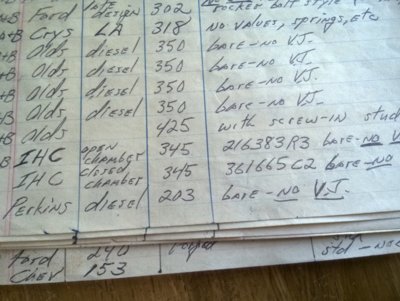 A+B Ford late design 302 rocker bolt style
A+B Crys LA 318 no valves, springs, etc
A+B Olds diesel 350 bare-no VJ.
A+B Olds diesel 350 bare-no VJ.
A+B Olds diesel 350 bare-no VJ.
Olds diesel 350 bare-no VJ.
Olds 425 with screw-in stud
B IHC open chamber 345 216383R3 bare-no V
IHC closed chamber 345 361665C2 bare-no
Perkins diesel 203 bare-no VJ.
Ford 240
Chev 153 std-